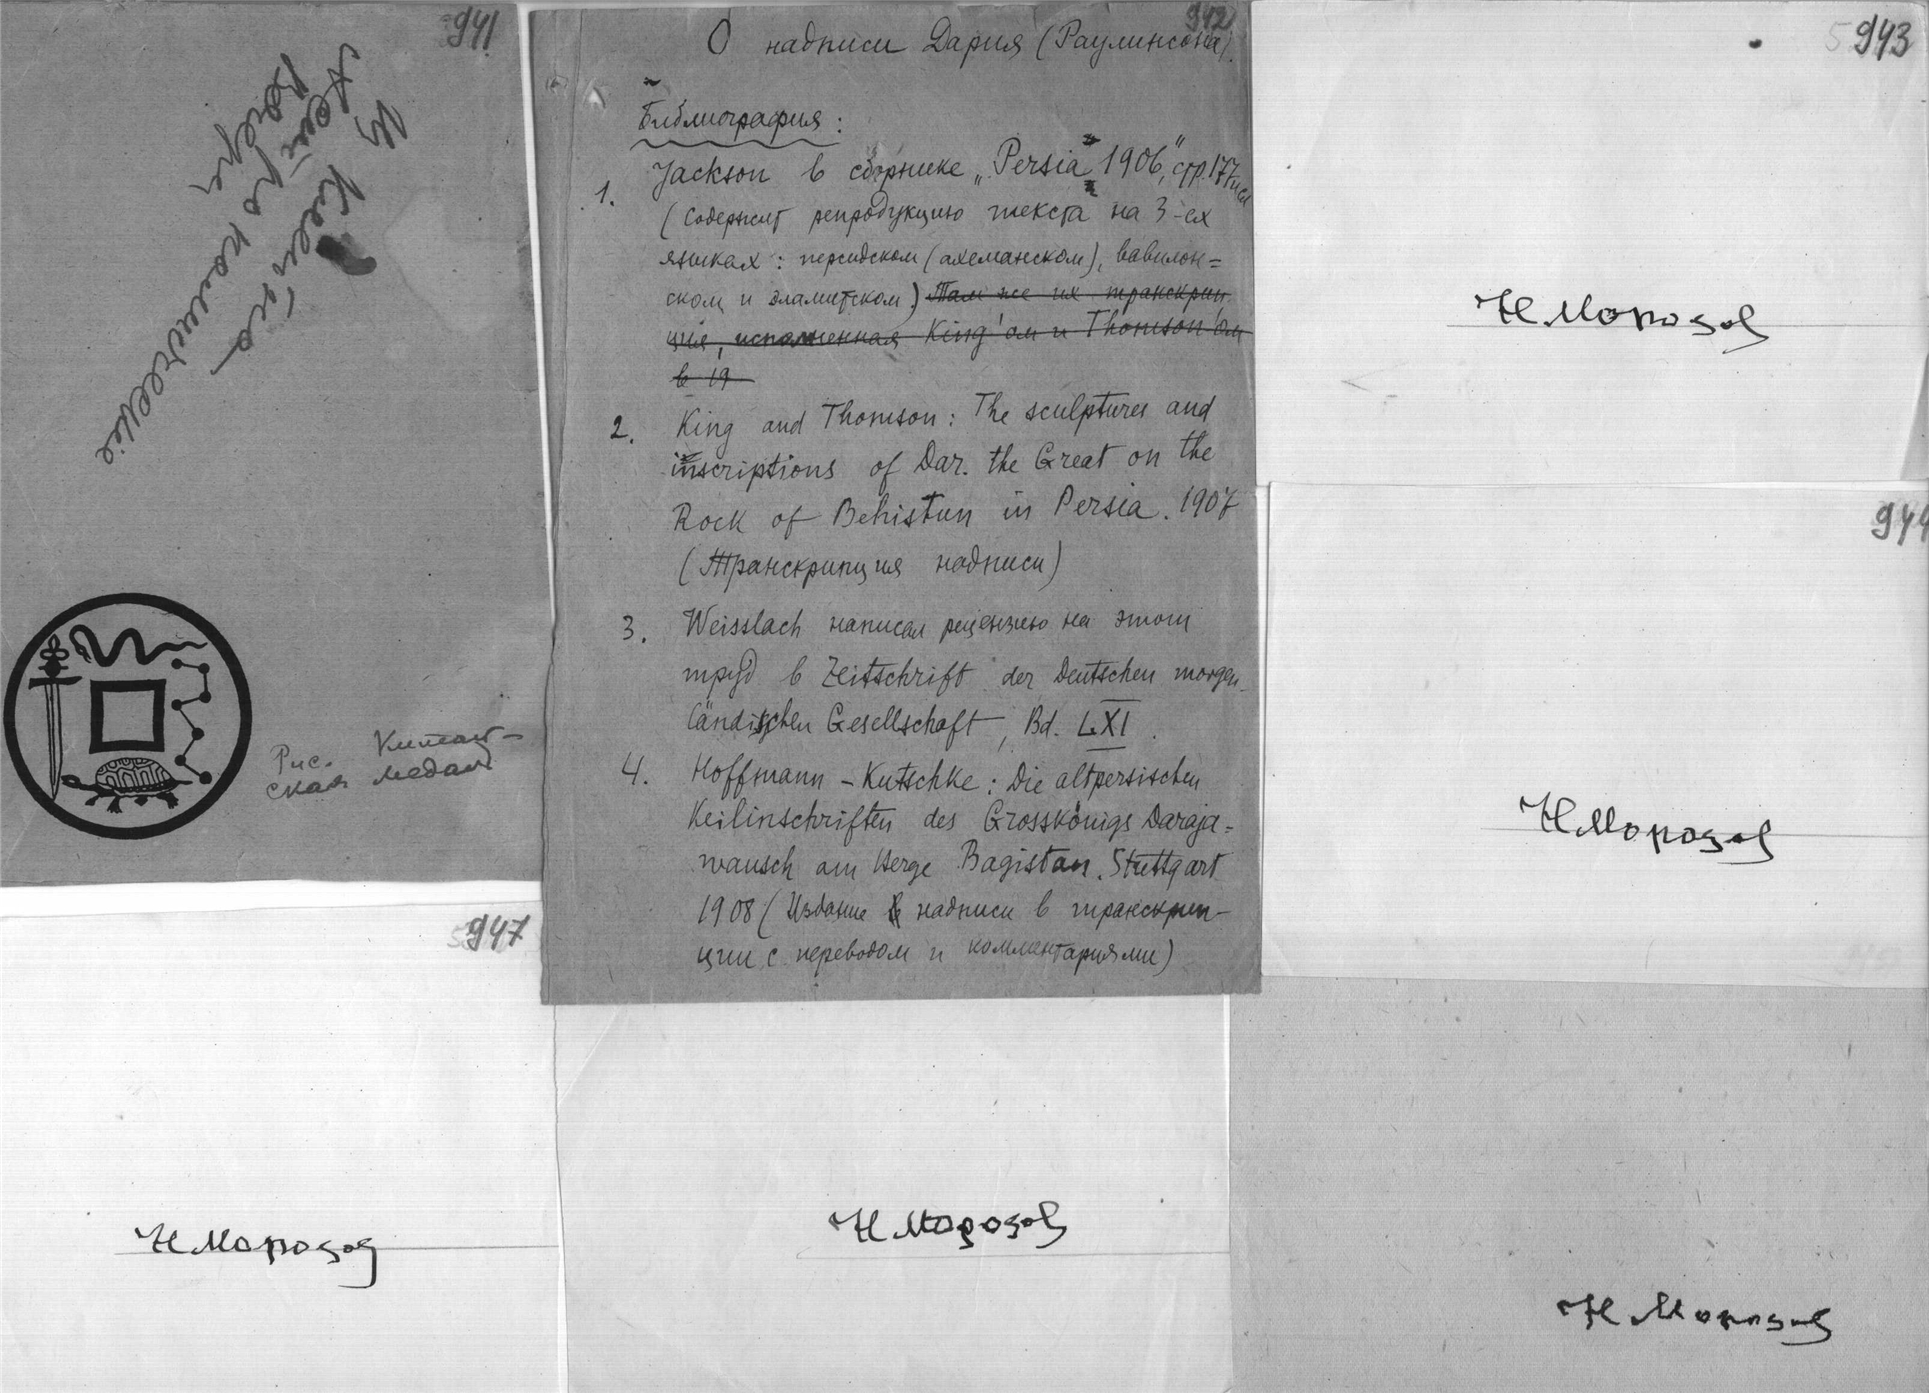 941
Рис. Китай-
ская медаль
942
О надписи Дария (Раулинсона).
Библиография:
1. Jackson в сборнике „Persia 1906", стр. 177
(Содержит репродукцию текста на 3-ех
языках: персидском (ахеманском), вавилон=
ском и эламитском) Там же их транскрип
ция, исполненная King'ом и Thomson'ом
в 19
2. King and Thomson: The sculptures and
inscriptions of Dar. the Great on the
Rock of Behistun in Persia. 1907
(Транскрипция надписи)
3. Weisslach написал рецензию на этот
труд в Zeitschrift der Deutschen morgen
ländischen Gesellschaft, Bd. LXI.
4. Hoffmann-Kutschke: Die altpersischen
Keilinschriften des Grosskönigs Daraja=
wausch am Berge Bagistan. Stuttgart
1908 (Издание надписи в транскрип-
ции с переводом и комментариями)
943
Н Морозов
944
Н Морозов
947
Н Морозов
Н Морозов
Н Морозов